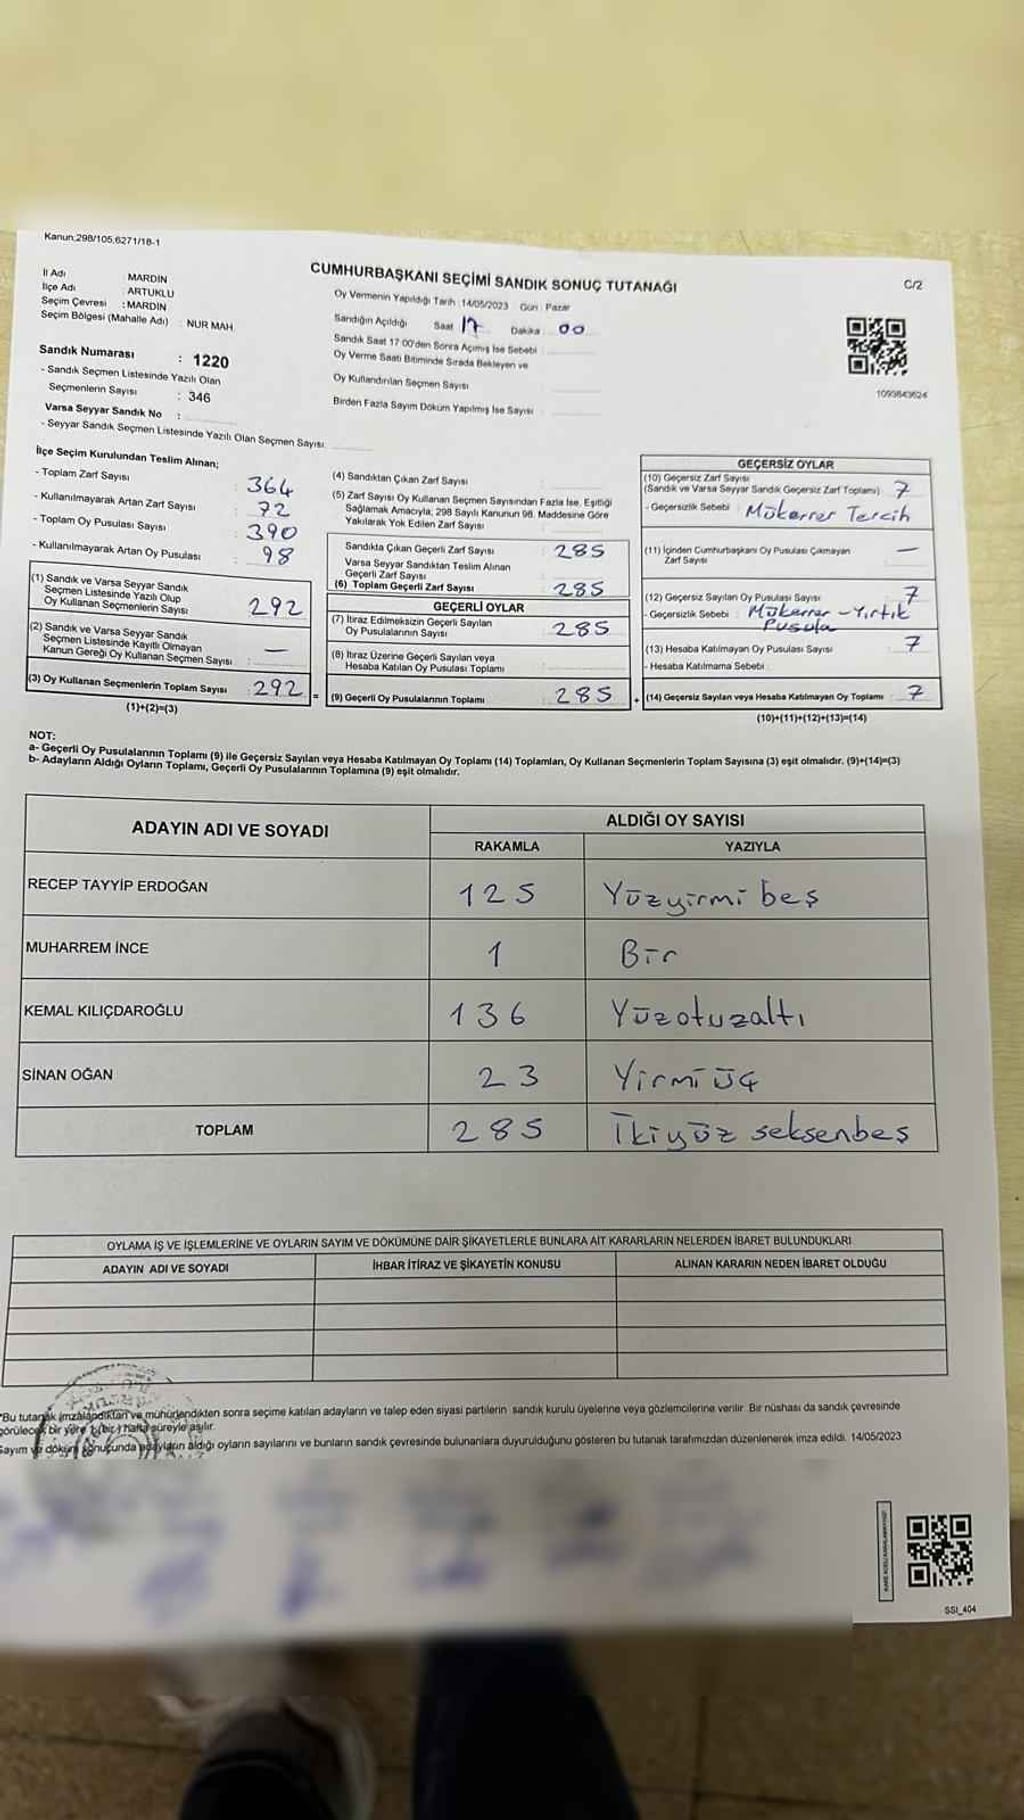 Kanun:298/105,6271/18-1
CUMHURBAŞKANI SEÇİMİ SANDIK SONUÇ TUTANAĞI
C/2
İl Adı MARDİN
İlçe Adı : ARTUKLU
Seçim Çevresi : MARDİN
Seçim Bölgesi (Mahalle Adı) : NUR MAH.
Sandık Numarası : 1220
- Sandık Seçmen Listesinde Yazılı Olan
Seçmenlerin Sayısı : 346
Varsa Seyyar Sandık No :
- Seyyar Sandık Seçmen Listesinde Yazılı Olan Seçmen Sayısı
Oy Vermenin Yapıldığı Tarih : 14/05/2023 Gün : Pazar
Sandığın Açıldığı Saat 17 Dakika 00
Sandık Saat 17:00'den Sonra Açımış İse Sebebi
Oy Verme Saati Bitiminde Sırada Bekleyen ve
Oy Kullandırılan Seçmen Sayısı
Birden Fazla Sayım Döküm Yapılmış İse Sayısı
1093843624
İlçe Seçim Kurulundan Teslim Alınan;
- Toplam Zarf Sayısı : 364
- Kullanılmayarak Artan Zarf Sayısı : 72
- Toplam Oy Pusulası Sayısı : 390
- Kullanılmayarak Artan Oy Pusulası : 98
(1) Sandık ve Varsa Seyyar Sandık
Seçmen Listesinde Yazılı Olup
Oy Kullanan Seçmenlerin Sayısı : 292
(2) Sandık ve Varsa Seyyar Sandık
Seçmen Listesinde Kayıtlı Olmayan
Kanun Gereği Oy Kullanan Seçmen Sayısı : —
(3) Oy Kullanan Seçmenlerin Toplam Sayısı : 292 =
(1)+(2)=(3)
(4) Sandıktan Çıkan Zarf Sayısı
(5) Zarf Sayısı Oy Kullanan Seçmen Sayısından Fazla İse, Eşitliği
Sağlamak Amacıyla, 298 Sayılı Kanunun 98. Maddesine Göre
Yakılarak Yok Edilen Zarf Sayısı
Sandıkta Çıkan Geçerli Zarf Sayısı : 285
Varsa Seyyar Sandıktan Teslim Alınan
Geçerli Zarf Sayısı
(6) Toplam Geçerli Zarf Sayısı : 285
GEÇERLİ OYLAR
(7) İtiraz Edilmeksizin Geçerli Sayılan
Oy Pusulalarının Sayısı : 285
(8) İtiraz Üzerine Geçerli Sayılan veya
Hesaba Katılan Oy Pusulası Toplamı
(9) Geçerli Oy Pusulalarının Toplamı : 285 +
GEÇERSİZ OYLAR
(10) Geçersiz Zarf Sayısı
(Sandık ve Varsa Seyyar Sandık Geçersiz Zarf Toplamı) : 7
- Geçersizlik Sebebi : Mükerrer Tercih
(11) İçinden Cumhurbaşkanı Oy Pusulası Çıkmayan
Zarf Sayısı —
(12) Geçersiz Sayılan Oy Pusulası Sayısı : 7
- Geçersizlik Sebebi : Mükerrer - Yırtık
Pusula
(13) Hesaba Katılmayan Oy Pusulası Sayısı : 7
- Hesaba Katılmama Sebebi
(14) Geçersiz Sayılan veya Hesaba Katılmayan Oy Toplamı : 7
(10)+(11)+(12)+(13)=(14)
NOT:
a- Geçerli Oy Pusulalarının Toplamı (9) ile Geçersiz Sayılan veya Hesaba Katılmayan Oy Toplamı (14) Toplamları, Oy Kullanan Seçmenlerin Toplam Sayısına (3) eşit olmalıdır. (9)+(14)=(3)
b- Adayların Aldığı Oyların Toplamı, Geçerli Oy Pusulalarının Toplamına (9) eşit olmalıdır.
ADAYIN ADI VE SOYADI ALDIĞI OY SAYISI
RAKAMLA YAZIYLA
RECEP TAYYİP ERDOĞAN 125 Yüzyirmi beş
MUHARREM İNCE 1 Bir
KEMAL KILIÇDAROĞLU 136 Yüzotuzaltı
SİNAN OĞAN 23 Yirmi üç
TOPLAM 285 İkiyüz seksenbeş
OYLAMA İŞ VE İŞLEMLERİNE VE OYLARIN SAYIM VE DÖKÜMÜNE DAİR ŞİKAYETLERLE BUNLARA AİT KARARLARIN NELERDEN İBARET BULUNDUKLARI
ADAYIN ADI VE SOYADI İHBAR İTİRAZ VE ŞİKAYETİN KONUSU ALINAN KARARIN NEDEN İBARET OLDUĞU
*Bu tutanak imzalandıktan ve mühürlendikten sonra seçime katılan adayların ve talep eden siyasi partilerin sandık kurulu üyelerine veya gözlemcilerine verilir. Bir nüshası da sandık çevresinde
görülecek bir yere 1 (bir) hafta süreyle asılır.
Sayım ve döküm sonucunda adayların aldığı oyların sayılarını ve bunların sandık çevresinde bulunanlara duyurulduğunu gösteren bu tutanak tarafımızdan düzenlenerek imza edildi. 14/05/2023
SSI_404